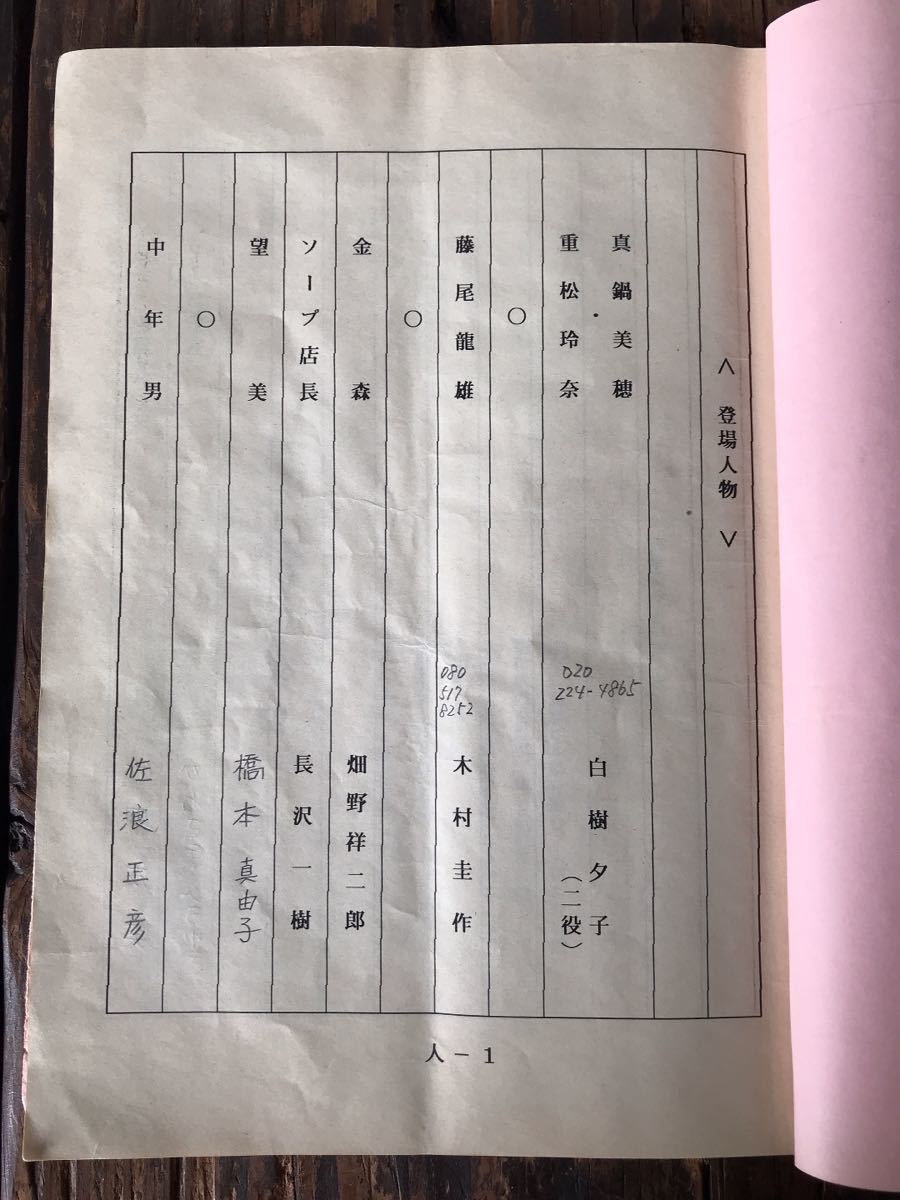 ＜ 登場人物 ＞
真鍋美穂・
重松玲奈
020
224-4865
白樹夕子
（二役）
○
藤尾龍雄
080
517
8252
木村圭作
○
金森 畑野祥二郎
ソープ店長 長沢一樹
望美 橋本真由子
○
中年男 佐浪正彦
人－1